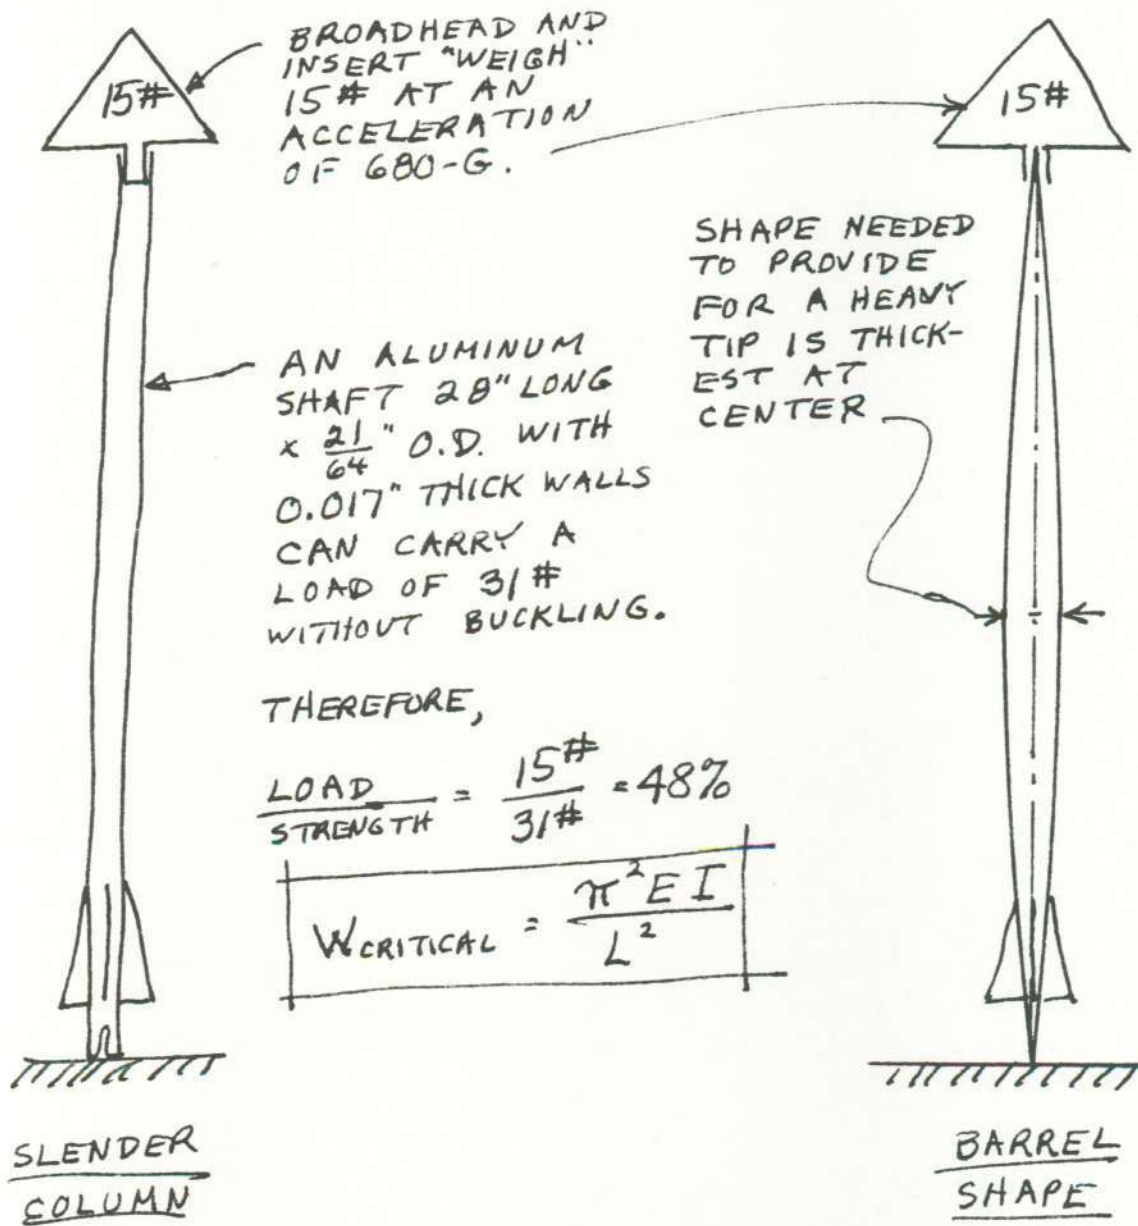 15#
BROADHEAD AND
INSERT "WEIGH"
15# AT AN
ACCELERATION
OF 680-G.
15#
SHAPE NEEDED
TO PROVIDE
FOR A HEAVY
TIP IS THICK-
EST AT
CENTER
AN ALUMINUM
SHAFT 28" LONG
x 21/64" O.D. WITH
0.017" THICK WALLS
CAN CARRY A
LOAD OF 31#
WITHOUT BUCKLING.
THEREFORE,
LOAD/STRENGTH = 15#/31# = 48%
WCRITICAL = π²EI/L²
SLENDER
COLUMN
BARREL
SHAPE